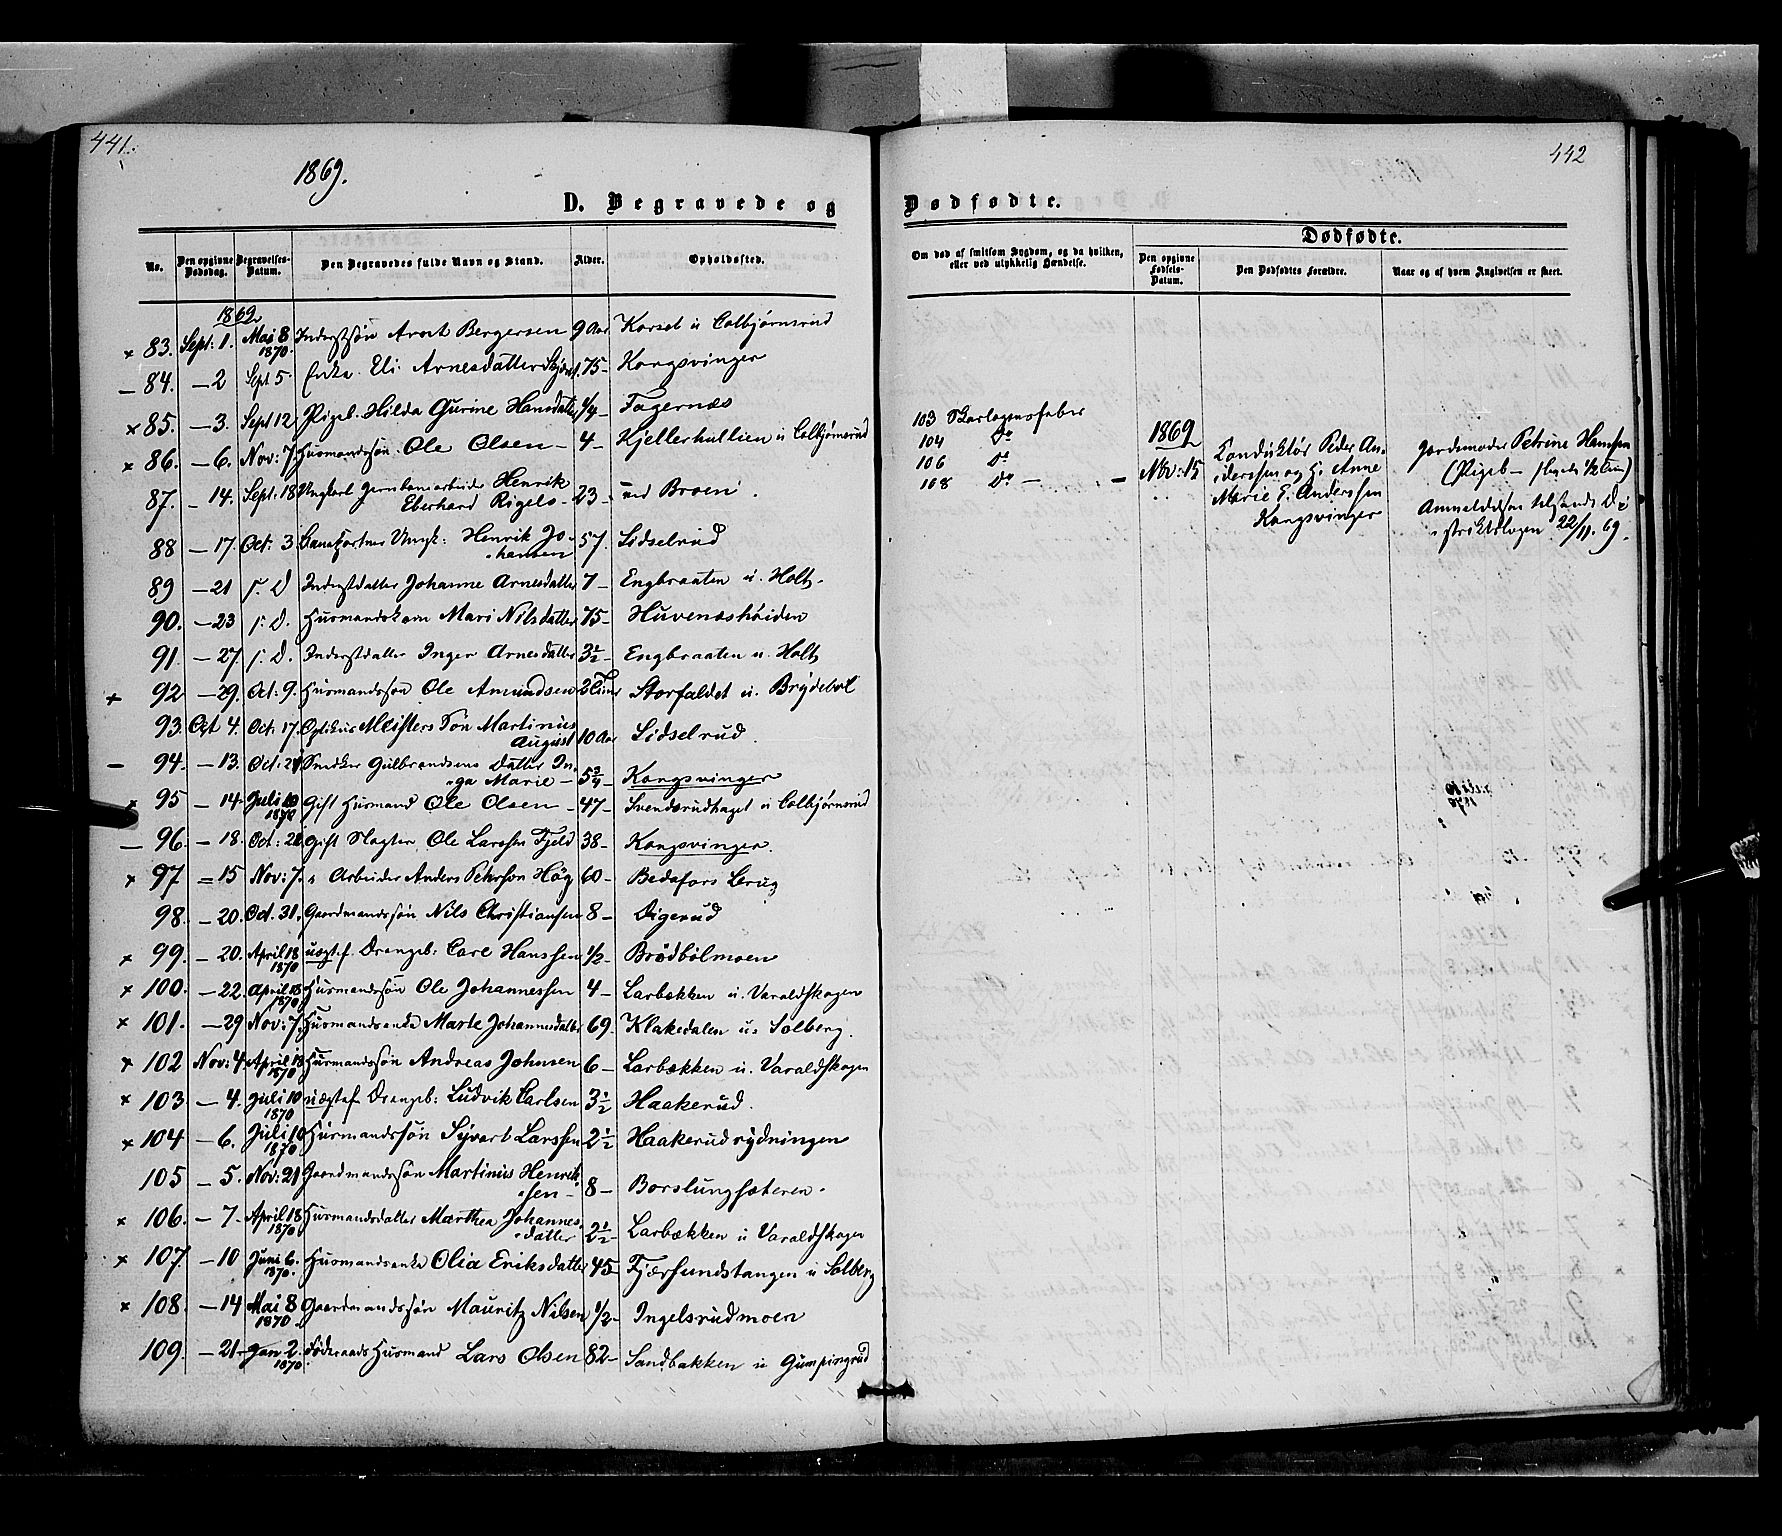 441.
1869.
D. Begravede og
No. | Den opgivne Dødsdag. | Begravelses-Datum. | Den Begravedes fulde Navn og Stand. | Alder. | Opholdssted.
1869
× 83. Sept: 1. Mai 8 1870. Inderstsøn Arnt Bergersen 9 Aar Korset u Colbjørnsrud
— 84. — 2 Sept 5. Enke Eli Arnesdatter 75 — Kongsvinger
× 85. — 3. Sept 12 Pigeb. Hilda Gurine Hansdatter 1/4 — Fagernæs
× 86. — 6. Nov: 7 Husmandssøn Ole Olsen — 4 — Kjellerhullien u Colbjørnsrud
87. — 14. Sept. 18 Ungkarl Jernbanearbeider Henrik
Eberhard Rigels — 23 — ved Broen.
88 — 17. Oct: 3. Ungk: Henrik Jo-
hansen 57. Lidselrud
89 — 21 s. D Inderstdatter Johanne Arnesdatter 7 — Engbraaten u. Holt.
90. — 23 s: D. Husmandskone Mari Nilsdatter 75 — Huvenæshøiden
91. — 27. s: D. Inderstdatter Inger Arnesdatter 3 1/2 — Engbraaten u. Holt
+ 92 — 29. Oct: 9. Husmandssøn Ole Amundsen 2 Storfaldet u. Brydebøl
93. Oct 4. Oct: 17. Optikus Meisters Søn Martinius
August 10 Aar Lidselrud.
— 94. — 13. Oct: 21 Snedker Gulbrandsens Datter In-
ga Marie — 5 3/4 — Kongsvinger
× 95 — 14. Juli 10 1870 Gift Husmand Ole Olsen — 47 — Svendsrudhaget u Colbjørnsrud
— 96. — 18. Oct: 24 gift Slagter Ole Larssen Fjeld 38 — Kongsvinger.
× 97 = 15 Nov: 7. Arbeider Anders Pehrson Hög 60 — Bedafors Brug
98. — 20. Oct. 31. Gaardmandssøn Nils Christiansen 8 — Digerud
× 99. — 20. April 18 1870 uægtef. Drengeb: Carl Hanssen 1/2 — Brødbølmoen
× 100. — 22. April 18 1870 Husmandssøn Ole Johannessen 4 — Larbækken u. Varaldskogen
× 101. — 29 Nov: 7. Husmandsenke Marte Johannesdatter 69. Klakedalen u. Solberg.
× 102 Nov: 4. April 18 1870 Husmandssøn Andreas Johnsen 6 — Larbækken u. Varaldskogen
× 103 — 4. Juli 10 1870 uægtef. Drengeb: Ludvik Carlsen 3 1/2 Haakerud.
× 104 — 6. Juli 10 1870 Husmandssøn Syvert Larssen 2 1/2 Haakerudrydningen
105 — 5. Nov: 21 Gaardmandssøn Martinius Henrik-
sen — 8 — Borslungsæteren.
× 106. — 7 — April 18 1870 Husmandsdatter Marthea Johannes-
datter 2 1/2 — Larbækken u Varaldskogen
× 107. — 10 Juni 6. 1870. Husmandsenke Olia Eriksdatter 45 — Fjærsundstangen u Solberg
× 108. — 14 Mai 8 1870 Gaardmandssøn Mauritz Nilsen 1/2 — Ingelsrudmoen
109. — 21 — Jan 2. 1870. Føderaads Husmand Lars Olsen 82 — Sandbakken u Gumpingrud
442
Dødfødte.
Om død af smitsom Sygdom, og da hvilken, eller ved ulykkelig Hændelse.
Dødfødte.
Den opgivne Fødsels-Datum. | Den Dødfødtes Forældre. | Naar og af hvem Angivelsen er skeet.
103 Skarlagensfeber
104 Do
106 Do
108 Do —
1869
— Nov: 15
Konduktør Peder An-
derssen og H. Anne
Marie E. Anderssen
Kongsvinger
Jordemoder Petrine Hansen
(Pigeb —
Anmeldelsen tilsendt Di-
striktslægen 22/11. 69.